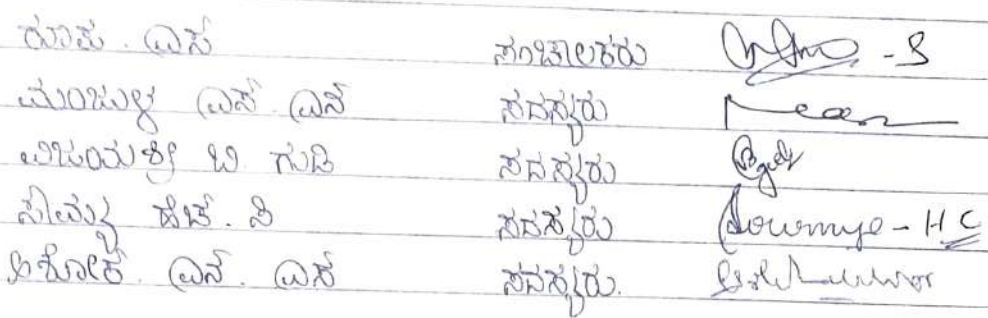 ರೂಪ. ಎಸ್ ಸಂಚಾಲಕರು -S
ಮಂಜುಳ ಎಸ್ ಎನ್ ಸದಸ್ಯರು
ವಿಜಯಶ್ರೀ ಬಿ ಗುಡಿ ಸದಸ್ಯರು
ಸೌಮ್ಯ ಹೆಚ್. ಸಿ ಸದಸ್ಯರು Sowmya - H C
ಅಶೋಕ್. ಎನ್. ಎಸ್ ಸದಸ್ಯರು.